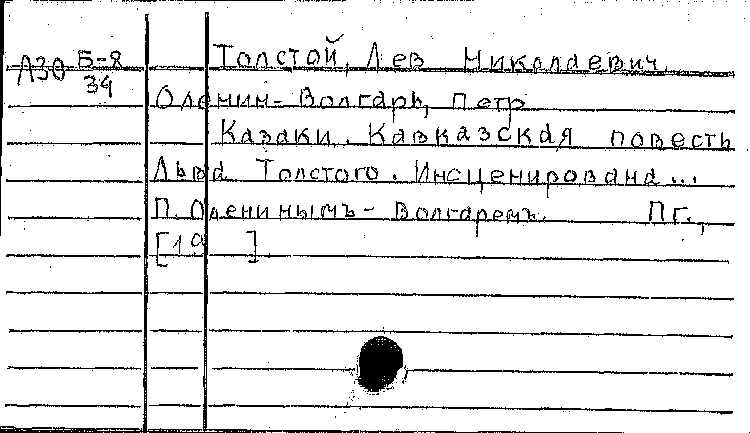 А30 Б-8/34
Толстой, Лев Николаевич.
Оленин-Волгарь, Петр
Казаки. Кавказская повесть
Льва Толстого. Инсценирована...
П. Оленинымъ-Волгаремъ. Пг.,
[19 ]